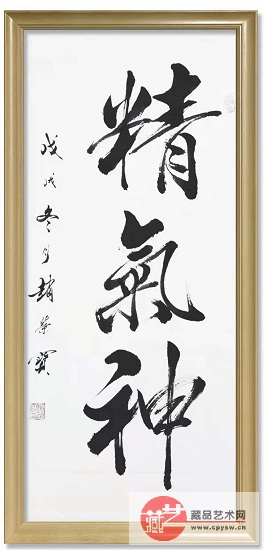 精氣神
戊戌冬月趙榮寶
藏艺
藏品艺术网
www.cpysw.cn